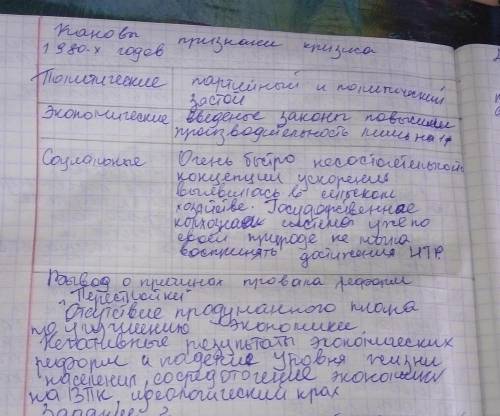 Каковы признаки кризиса
1980-х годов
Политические партийный и политический
застой
Экономические введеные законы повысили
производительность лишь на
Социальные Очень быстро несостоятельность
концепции ускорения
выявилась в сельском
хозяйстве. Государственная
система уже по
своей природе не могла
воспринять достижения НТР.
Вывод о причинах провала реформ
"Перестройки"
Отсутствие продуманного плана
по улучшению экономики
Негативные результаты экономических
реформ и падение уровня жизни
населения, сосредоточение экономики
на ВПК, идеологический крах
Задание 2